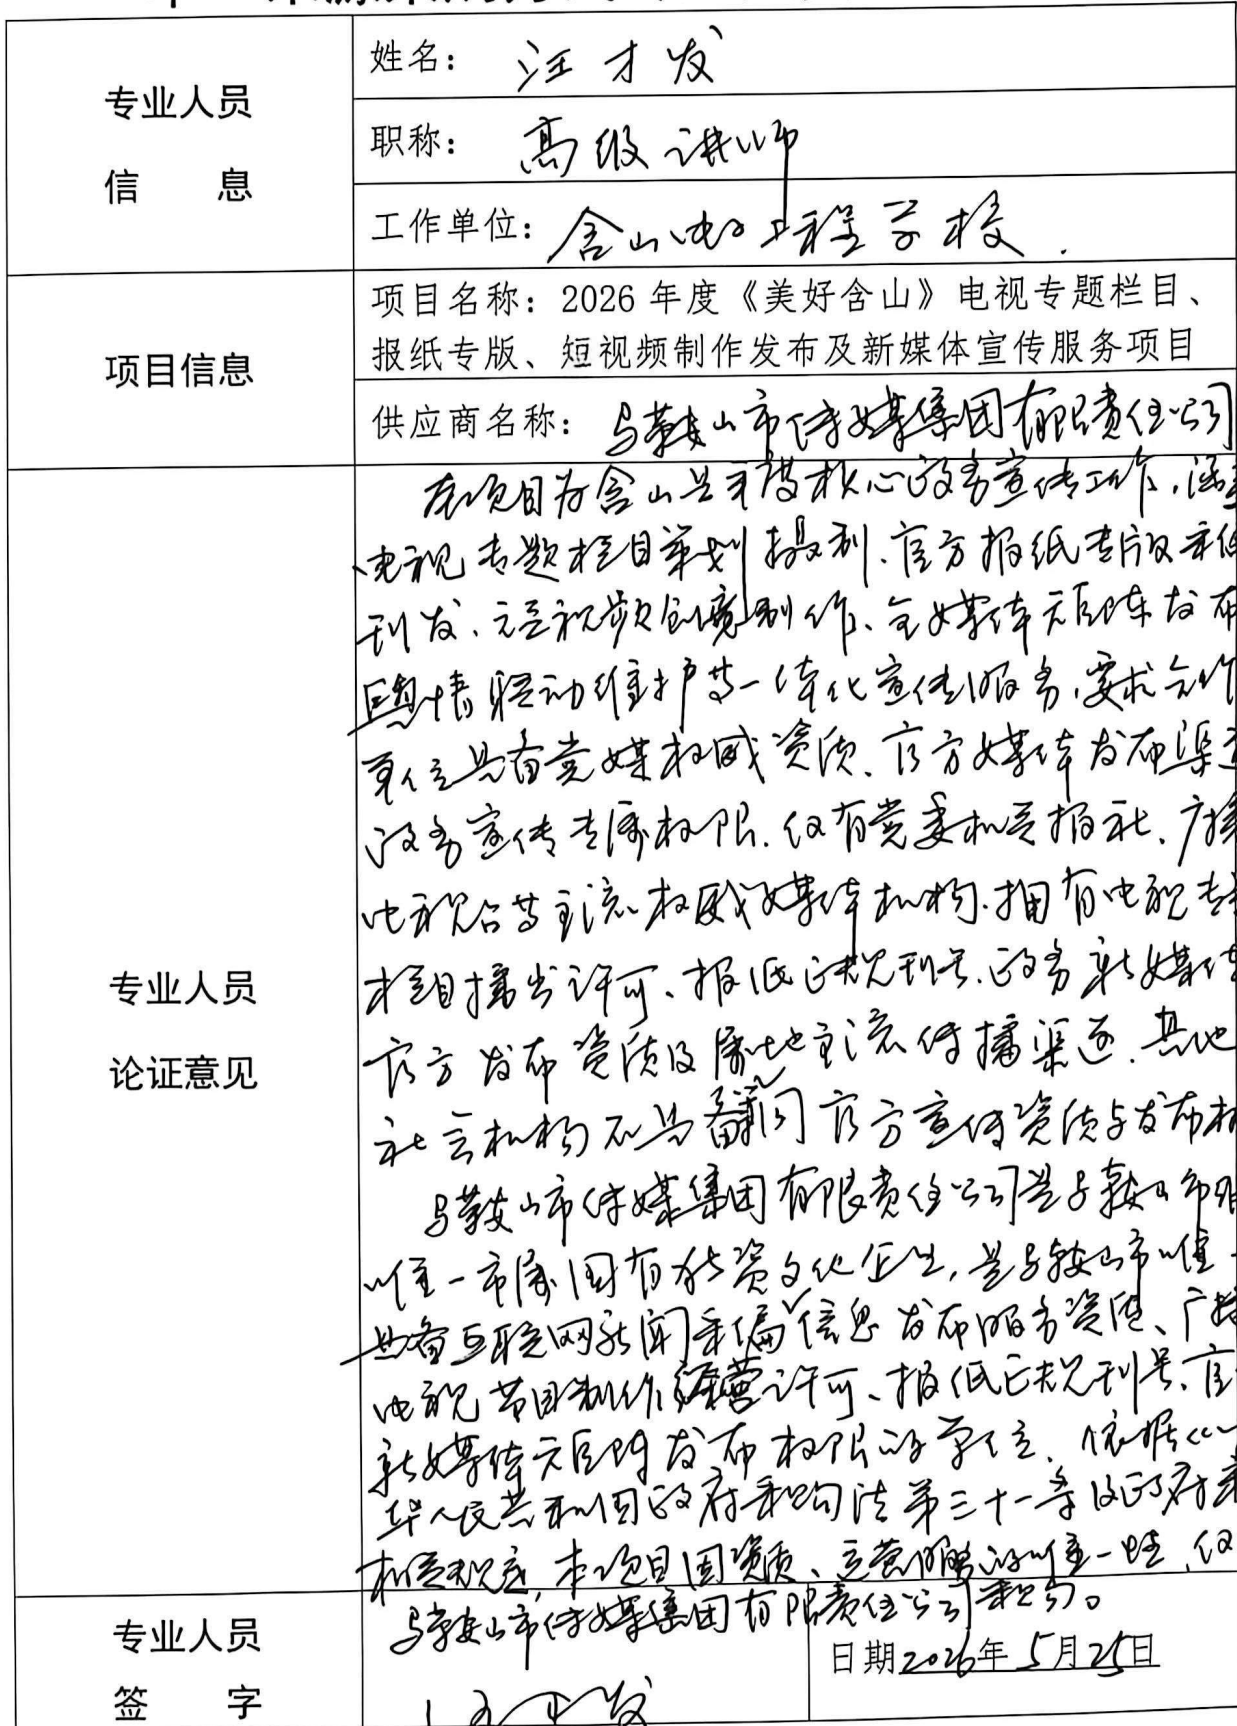 专业人员
信 息
姓名： 汪才发
职称： 高级讲师
工作单位： 含山电子工程学校
项目信息
项目名称：2026年度《美好含山》电视专题栏目、
报纸专版、短视频制作发布及新媒体宣传服务项目
供应商名称： 马鞍山市传媒集团有限责任公司
专业人员
论证意见
本项目为含山县年度核心政务宣传工作，涵盖
电视专题栏目策划摄制、官方报纸专版采编
刊发、短视频创意制作、全媒体矩阵发布
舆情联动维护等一体化宣传服务，要求合作
单位具备党媒权威资质、官方媒体发布渠道
政务宣传专属权限。仅有党委机关报社、广播
电视台等主流权威媒体机构，拥有电视专题
栏目播出许可、报纸正规刊号、政务新媒体
官方发布资质及属地主流传播渠道。其他
社会机构不具备新闻官方宣传资质与发布权
马鞍山市传媒集团有限责任公司是马鞍山市
唯一市属国有独资文化企业，是马鞍山市唯一
具备互联网新闻采编信息发布服务资质、广播
电视节目制作经营许可、报纸正规刊号、官
新媒体矩阵发布权限的单位。依据《
华人民共和国政府采购法第三十一条及政府采
相关规定，本项目因资质、运营服务的唯一性，仅
马鞍山市传媒集团有限责任公司采购。
专业人员
签 字
汪才发
日期 2026年 5月25日